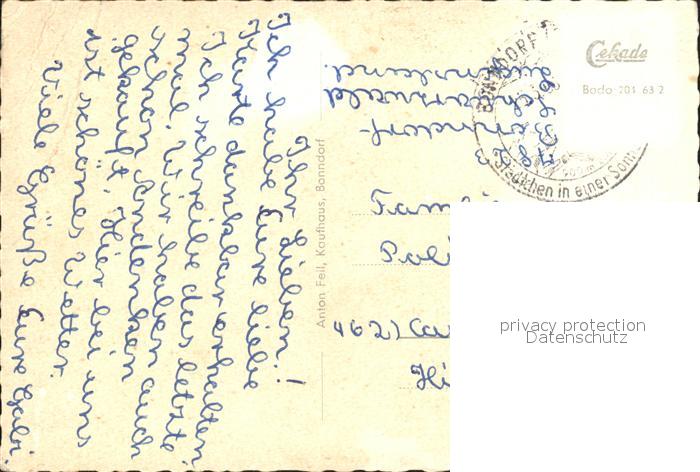 Ihr Lieben!
Ich habe Eure liebe
Karte dankbar erhalten
Ich schreibe das letzte
mal. Wir haben auch
schon Andenken
gekauft. Hier bei uns
ist schönes Wetter.
Viele Grüße Eure Gabi.
Anton Fell, Kaufhaus, Bonndorf
Cekade
Bodo 201 63 2
Städtchen in einer Sonn
Bonndorf-
Schwarzwald
Fam
Poli
462) Ca
Hi
privacy protection
Datenschutz